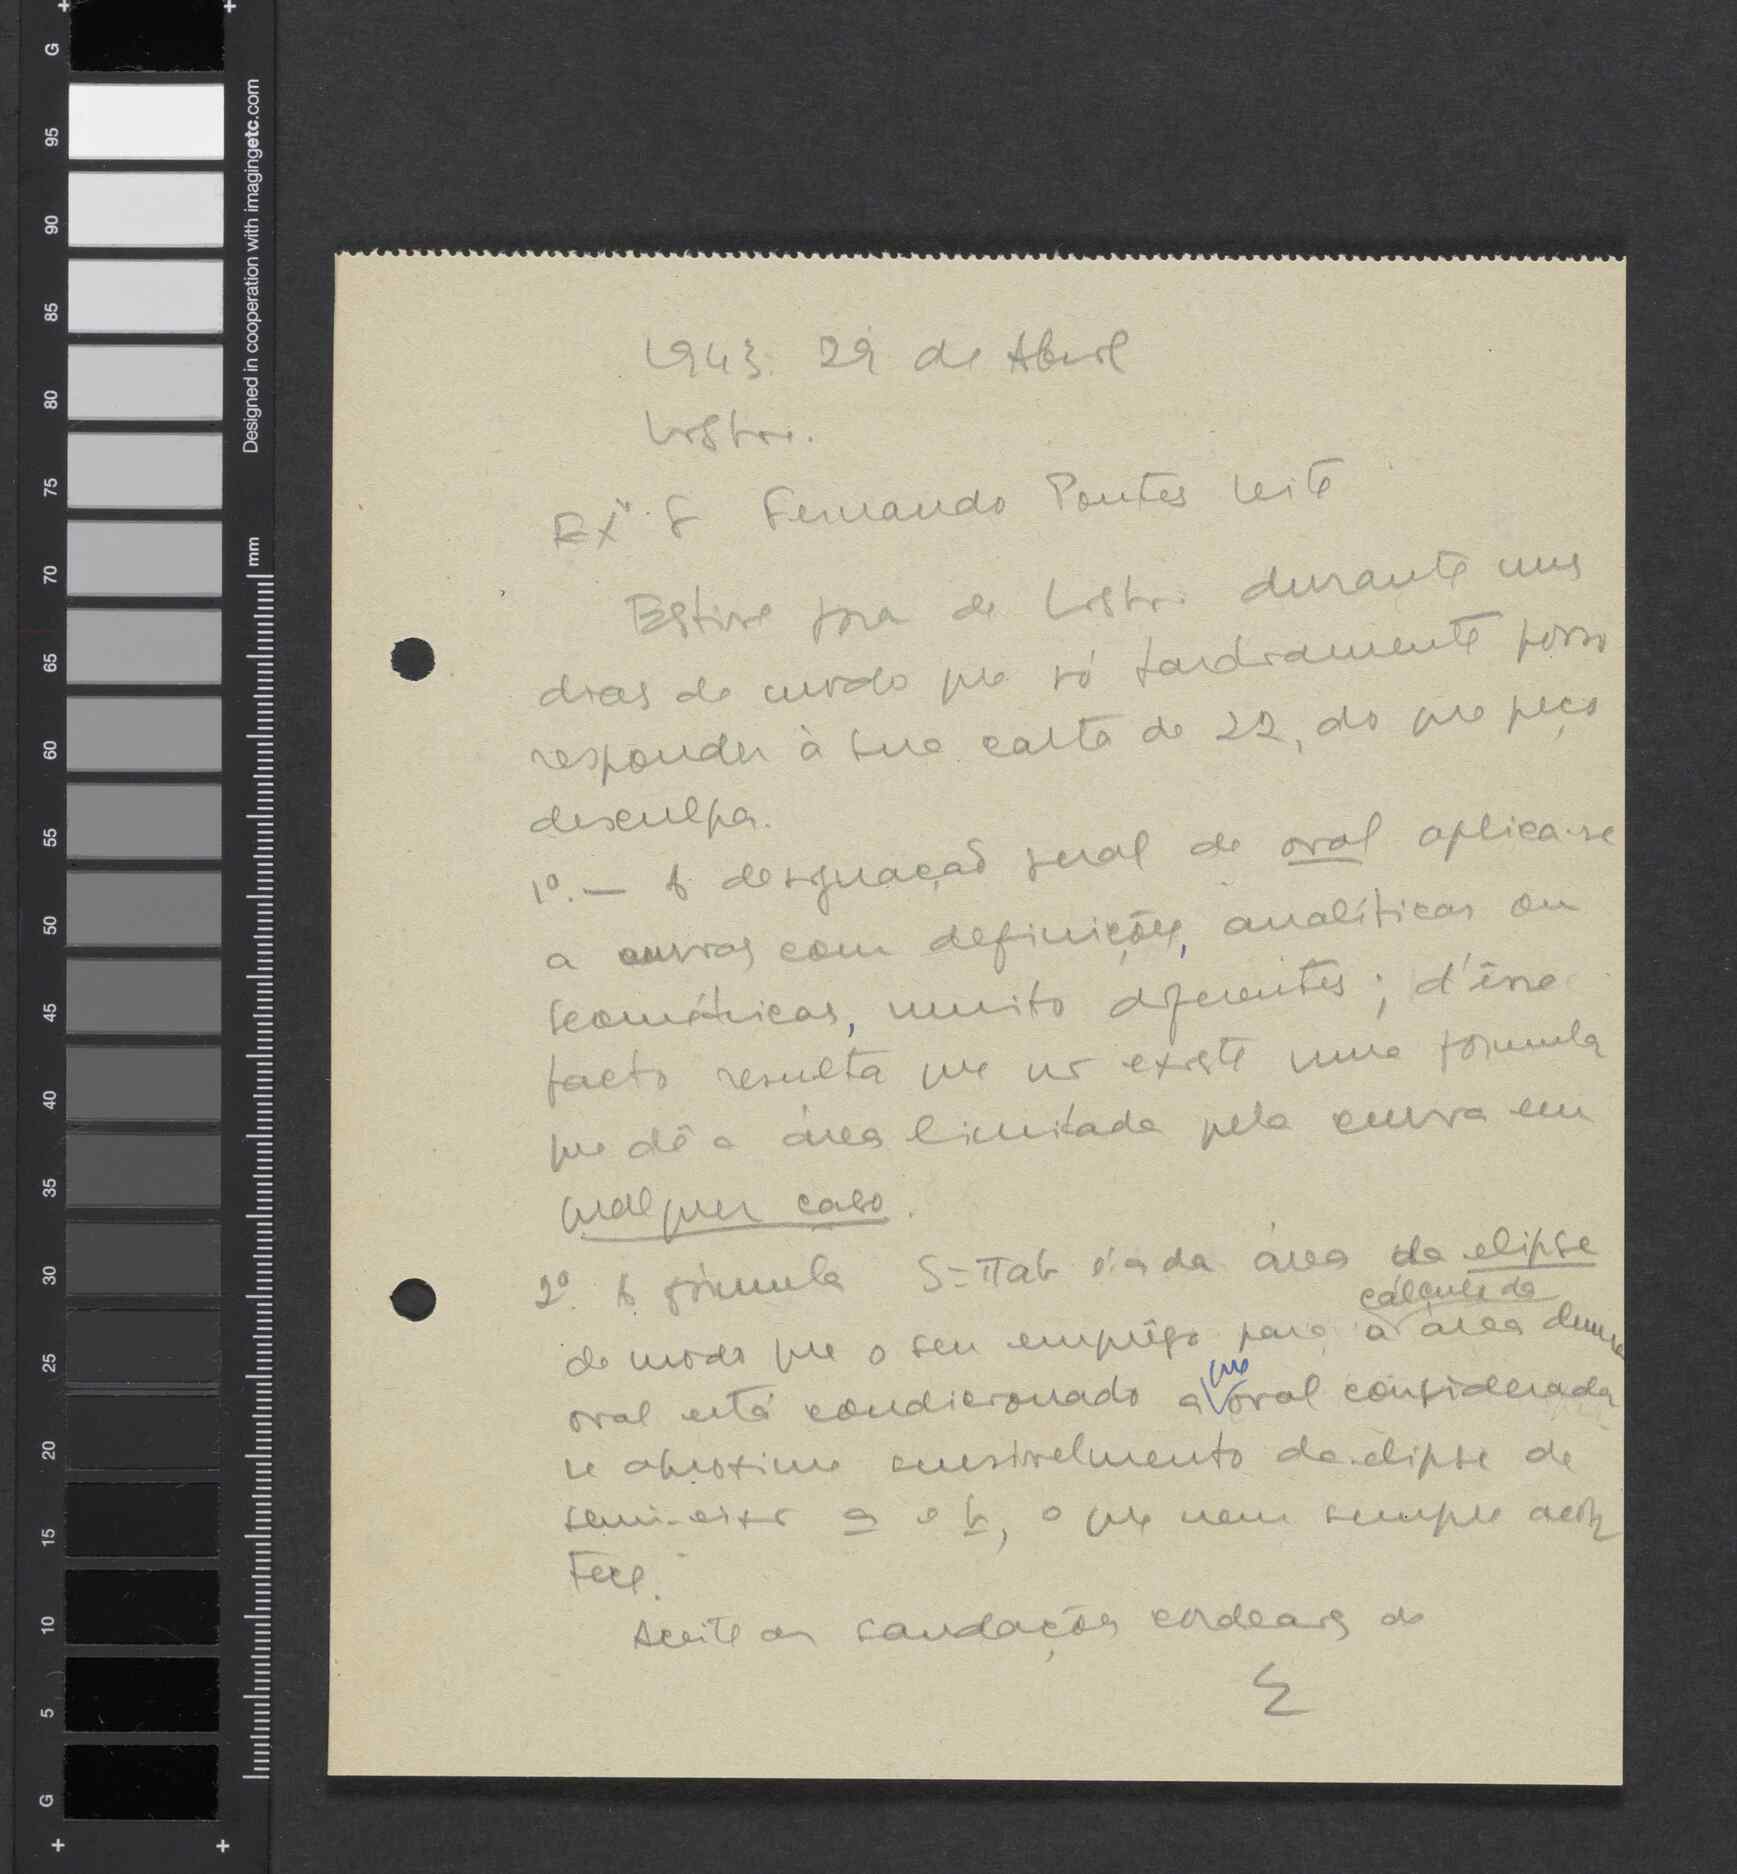 1943. 29 de Abril
Lisboa.
Exº. Sr Fernando Pontes Leite
Estive fora de Lisboa durante uns
dias de modo que só tardiamente posso
responder à sua carta de 22, do que peço
desculpa.
1º. — A designação geral de oval aplica-se
a curvas com definições, analíticas ou
geométricas, muito diferentes; d'êsse
facto resulta que não existe uma fórmula
que dê a área limitada pela curva em
qualquer caso.
2º. A fórmula S=πab é a da área da elipse
cálculo da
de modo que o seu emprêgo para a área duma
que
oval está condicionado a oval considerada
se aproxime sensivelmente da elipse de
semi-eixos a e b, o que nem sempre acon
tece.
Aceite as saudações cordeais de
G
95
90
85
80
75
70
65
60
55
50
45
40
35
30
25
20
15
10
5
G
mm
Designed in cooperation with imagingetc.com